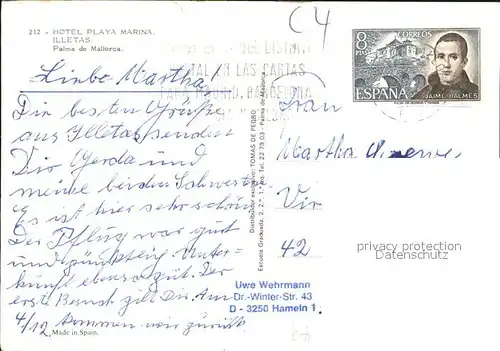 212 - HOTEL PLAYA MARINA.
ILLETAS
Palma de Mallorca.
C4
DEL DISTRITO
POSTAL EN LAS CARTAS
PARA MADRID, BARCELONA
8
PTAS
CORREOS
ESPAÑA
JAIME BALMES
Liebe Martha!
Die besten Grüße
aus Illetas senden
Dir Gerda und
meine beiden Schwestern.
Es ist hier sehr schön.
Der Flug war gut
und pünktlich, Unter-
kunft ebenso gut. Der
erste Besuch gilt Dir. Am
4/12 kommen wir zurück
Made in Spain.
Distribuidor exclusivo: TOMAS DE PEDRO
Escuela Graduada, 2, 2.° Tel. 22 79 03 - Palma de Mallorca
Frau
Martha
Vir
42
privacy protection
ansichtskartenversand.com
Uwe Wehrmann
Dr.-Winter-Str. 43
D - 3250 Hameln 1